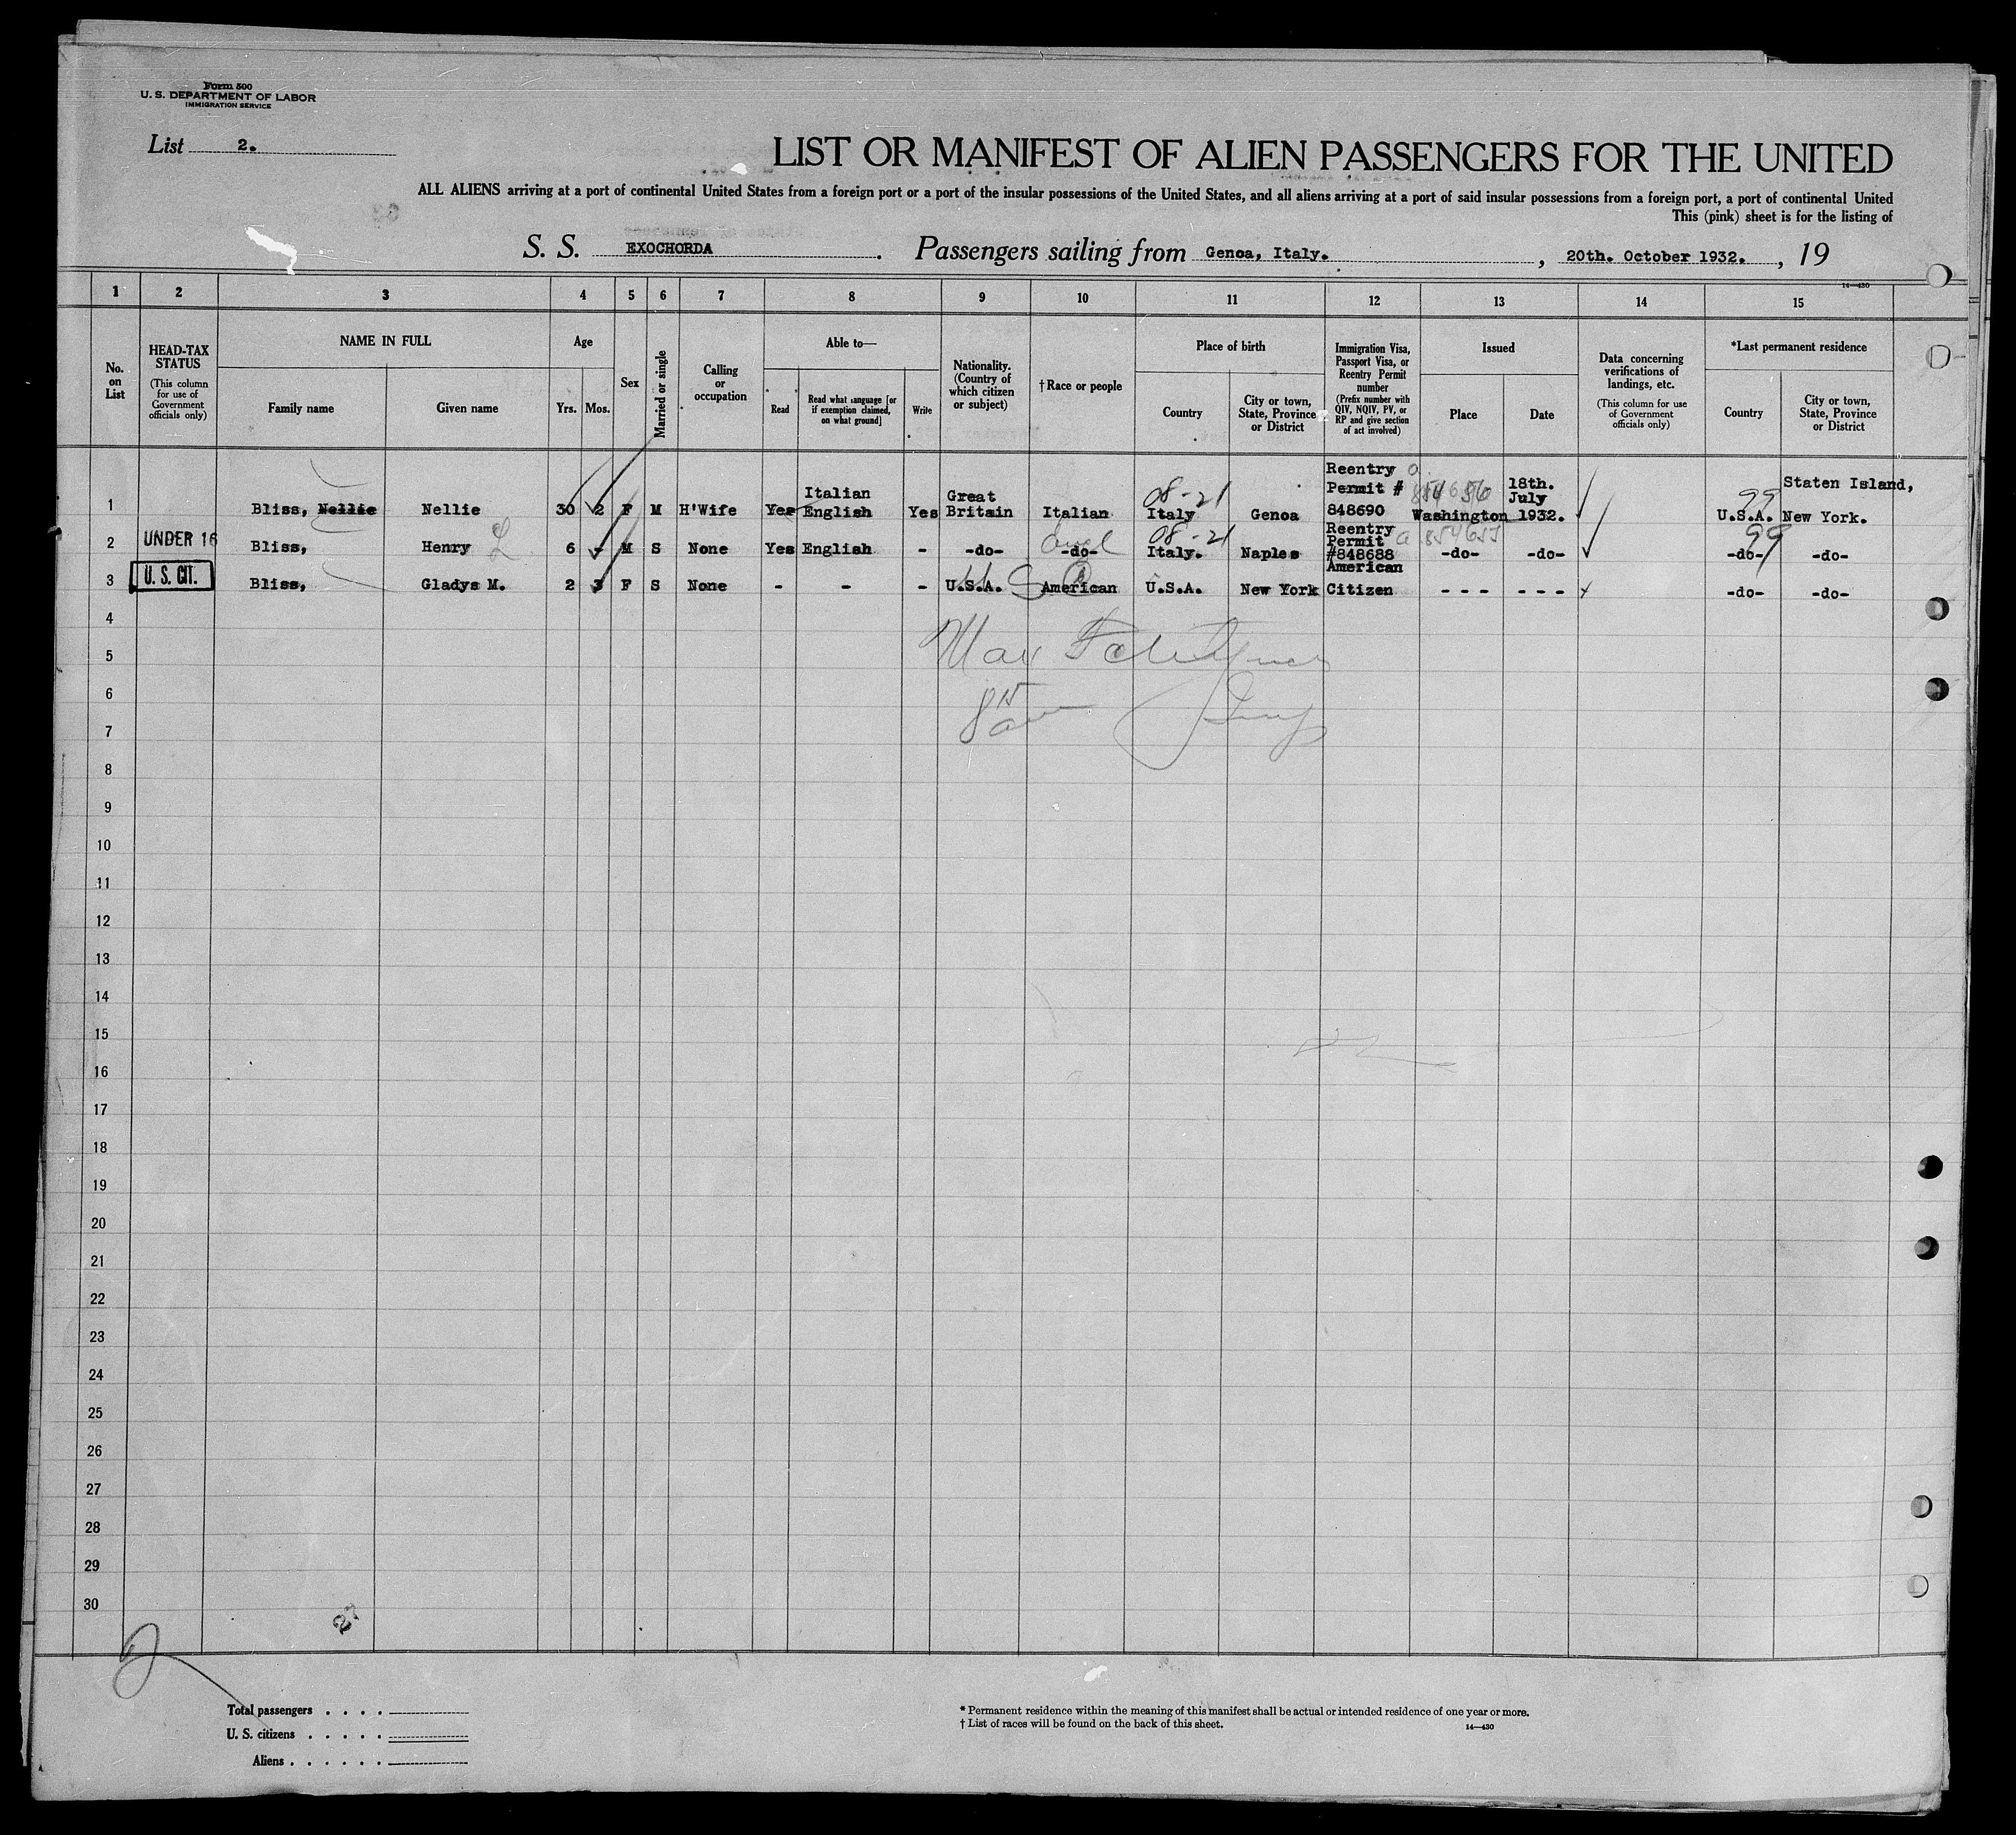 Form 500
U. S. DEPARTMENT OF LABOR
IMMIGRATION SERVICE
List 2.
LIST OR MANIFEST OF ALIEN PASSENGERS FOR THE UNITED
ALL ALIENS arriving at a port of continental United States from a foreign port or a port of the insular possessions of the United States, and all aliens arriving at a port of said insular possessions from a foreign port, a port of continental United
This (pink) sheet is for the listing of
S. S. EXOCHORDA. Passengers sailing from Genoa, Italy. , 20th. October 1932. , 19
14—430
1 2 3 4 5 6 7 8 9 10 11 12 13 14 15
No. on List
HEAD-TAX STATUS
(This column for use of Government officials only)
NAME IN FULL
Family name
Given name
Age
Yrs. Mos.
Sex
Married or single
Calling or occupation
Able to—
Read
Read what language [or if exemption claimed, on what ground]
Write
Nationality. (Country of which citizen or subject)
†Race or people
Place of birth
Country
City or town, State, Province or District
Immigration Visa, Passport Visa, or Reentry Permit number
(Prefix number with QIV, NQIV, PV, or RP and give section of act involved)
Issued
Place
Date
Data concerning verifications of landings, etc.
(This column for use of Government officials only)
*Last permanent residence
Country
City or town, State, Province or District
1 Bliss, Nellie Nellie 30 2 F M H'Wife Yes Italian English Yes Great Britain Italian 08-21 Italy Genoa Reentry Permit # 848690 Washington 18th. July 1932. 99 U.S.A. Staten Island, New York.
2 UNDER 16 Bliss, Henry L 6 - M S None Yes English - -do- -do- 08-21 Italy. Naples Reentry Permit #848688 a 854655 -do- -do- 99 -do- -do-
3 U. S. CIT. Bliss, Gladys M. 2 3 F S None - - - U.S.A. American U.S.A. New York American Citizen - - - - - - -do- -do-
4
5
6
7
8
9
10
11
12
13
14
15
16
17
18
19
20
21
22
23
24
25
26
27
28
29
30
2
Total passengers . . . .
U. S. citizens . . . . .
Aliens . . . . . .
* Permanent residence within the meaning of this manifest shall be actual or intended residence of one year or more.
† List of races will be found on the back of this sheet.
14—430